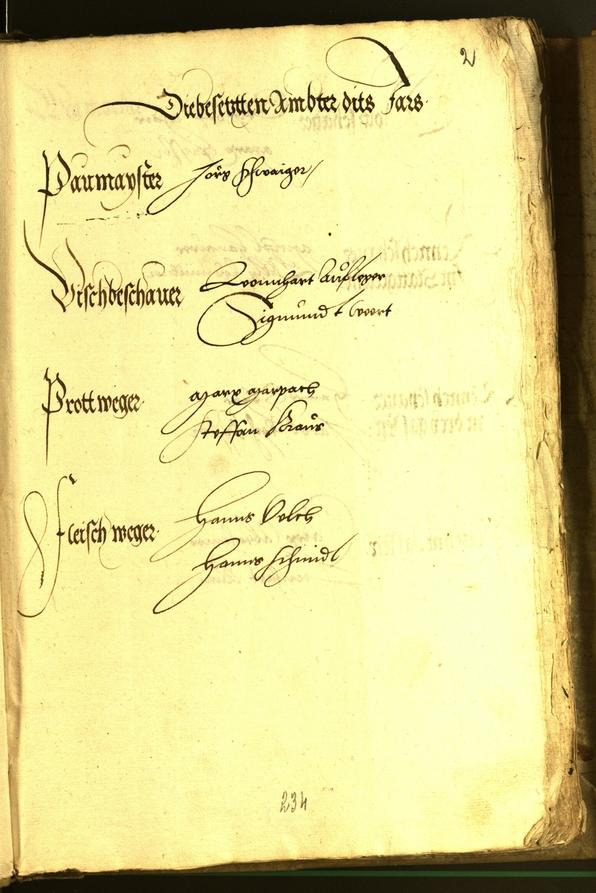 2
Die besetzten Ambter dits Jars
Paumayster Jörg Schwaiger
Vischbeschauer Leonnhart Aufleger
Sigmund
Prottweger Marx Marpach
Steffan Kraus
Fleischweger Hanns Volch
Hanns Schmidt
234